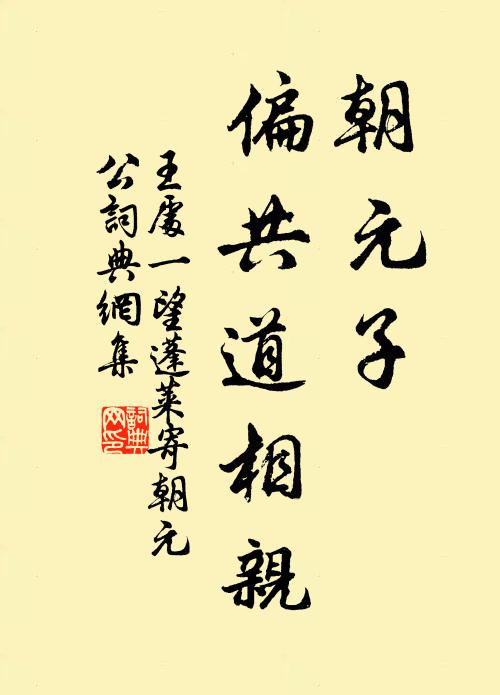 朝元子
偏共道相親
王處一望蓬萊寄朝元
公詞典網集
詞典
网印